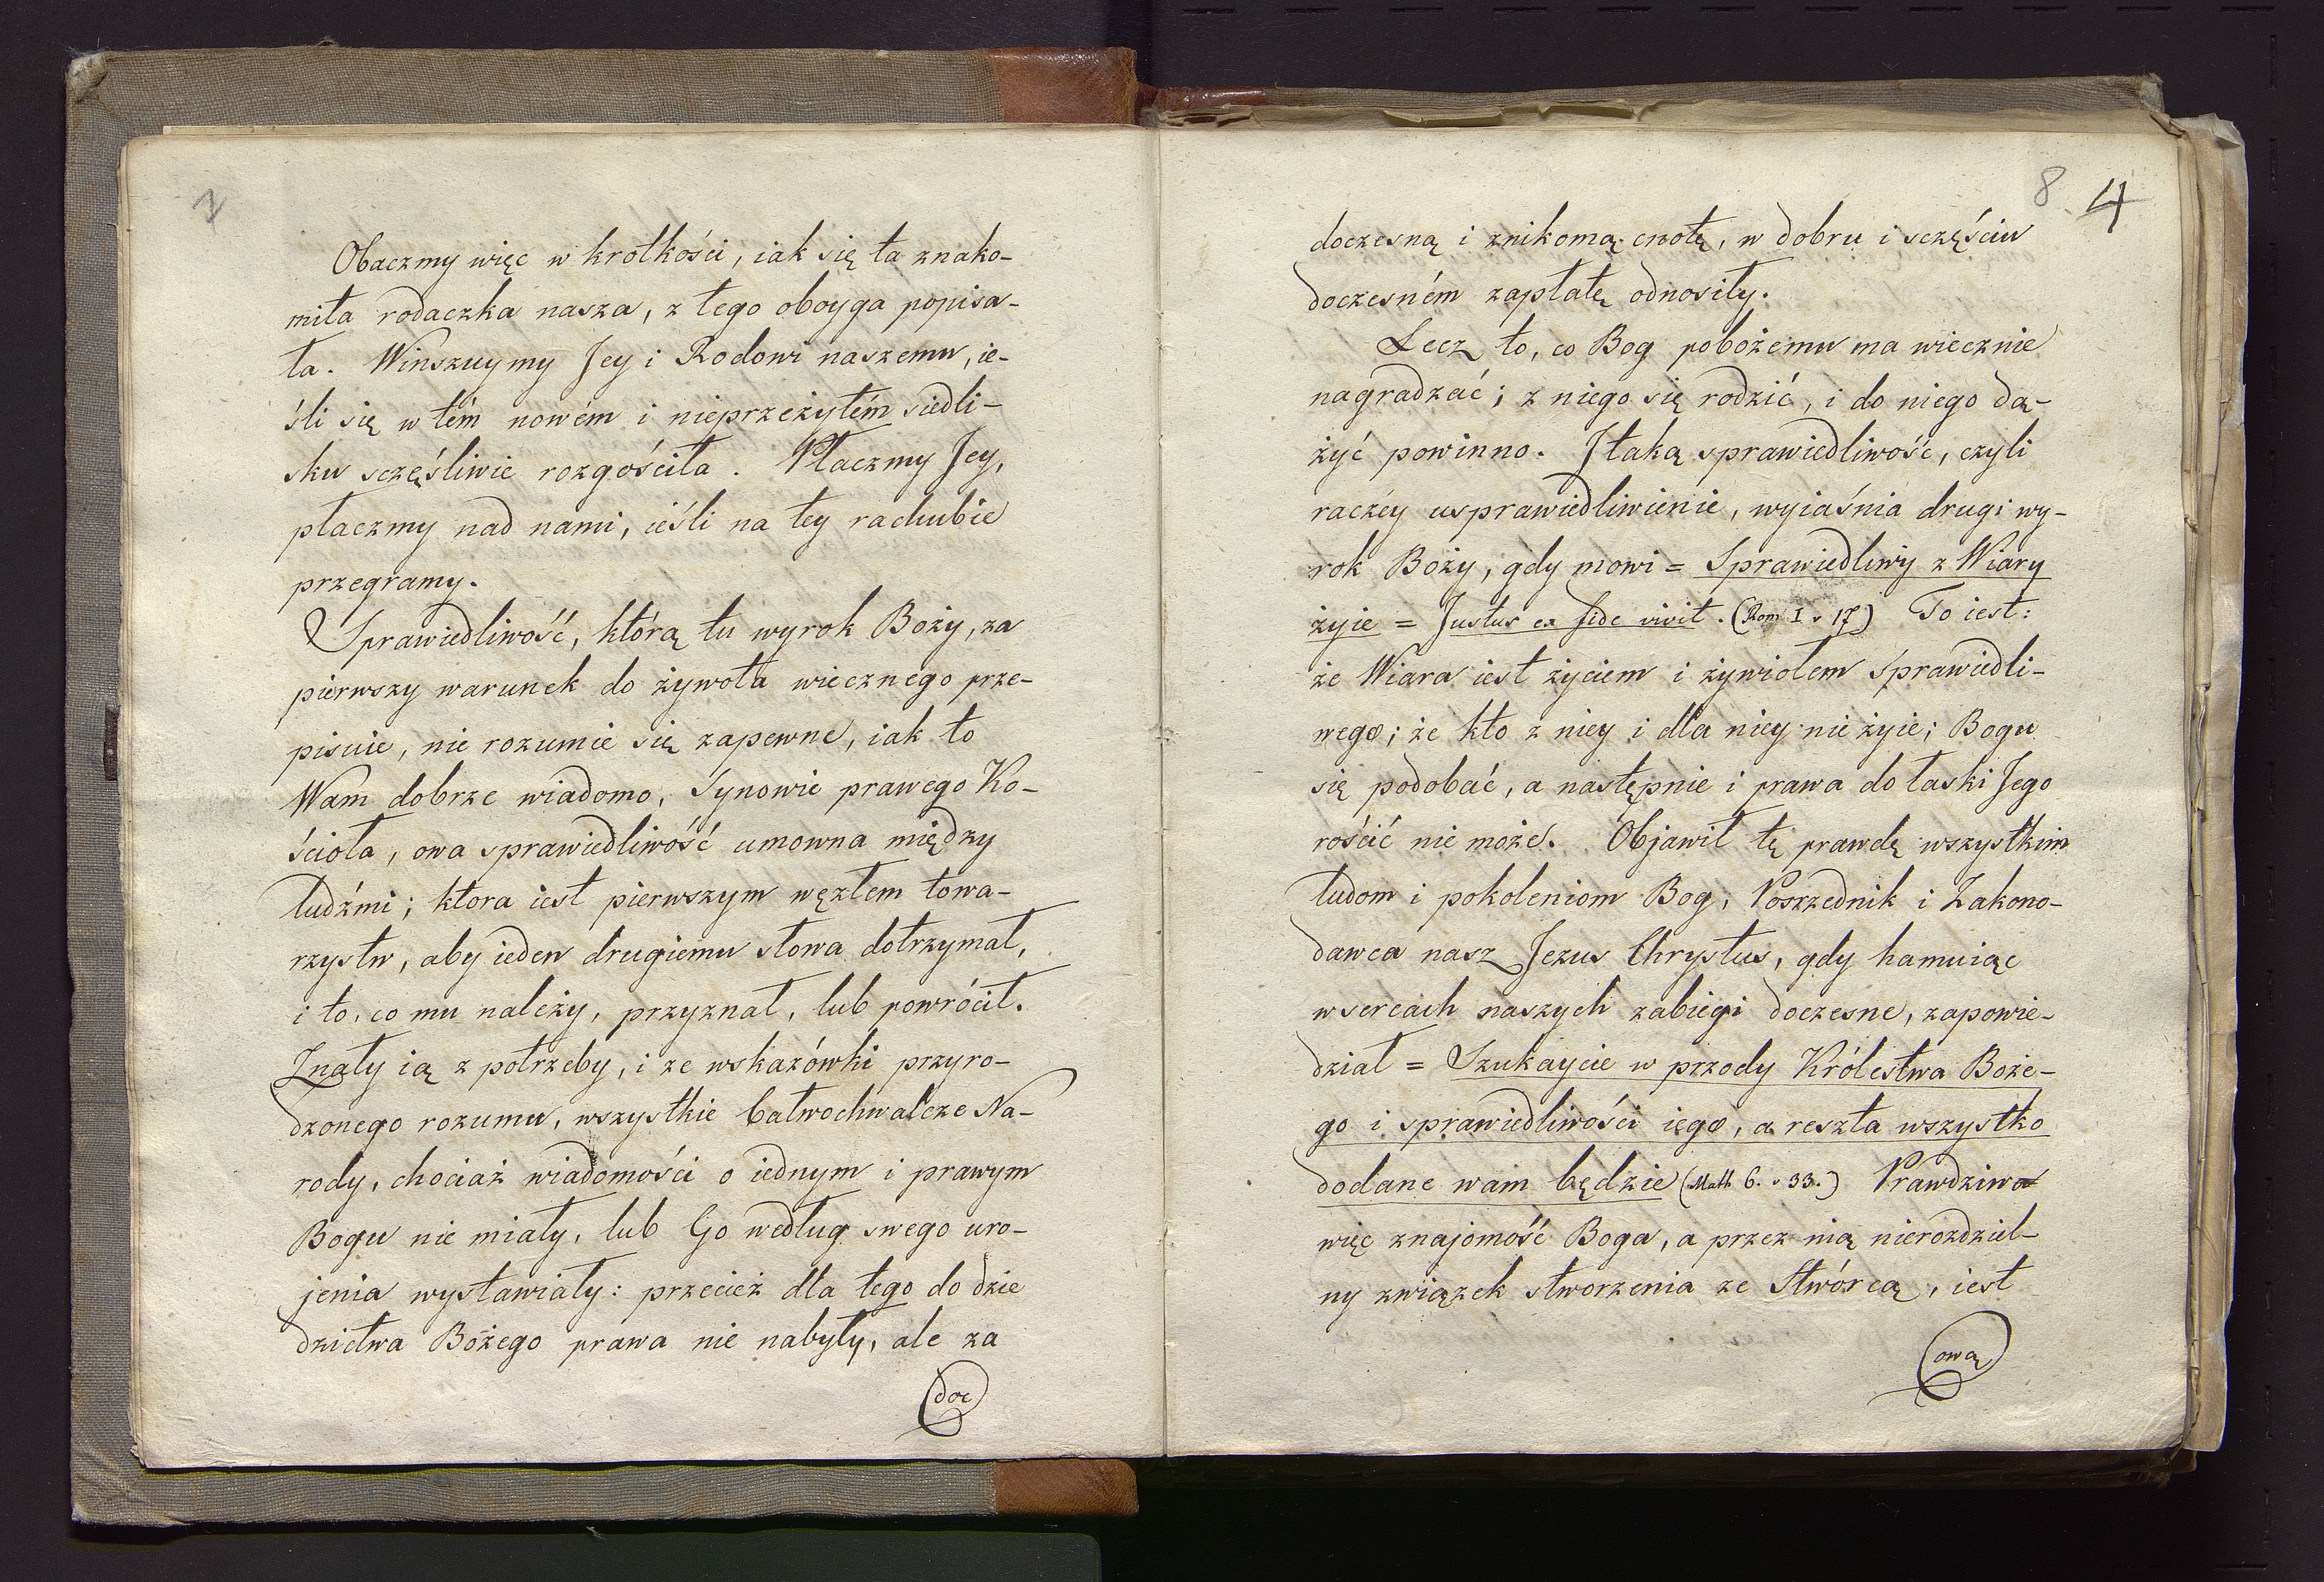 7
Obaczmy więc w krotkości, iak się ta znako-
miła rodaczka nasza, z tego oboyga popisa-
ła. Winszuymy Jey i Rodowi naszemu, ie-
śli się w tém nowém i nieprzeżytém siedli-
sku sczęśliwie rozgościła. Płaczmy Jey,
płaczmy nad nami, ieśli na tey rachubie
przegramy.
Sprawiedliwość, którą tu wyrok Boży, za
pierwszy warunek do żywota wiecznego prze-
pisuie, nie rozumie się zapewne, iak to
Wam dobrze wiadomo, Synowie prawego Ko-
ścioła, owa sprawiedliwość umowna między
ludźmi; ktora iest pierwszym węzłem towa-
rzystw, aby ieden drugiemu słowa dotrzymał,
i to, co mu należy, przyznał, lub powrócił.
Znały ią z potrzeby, i ze wskazówki przyro-
dzonego rozumu, wszystkie bałwochwalcze Na-
rody, chociaż wiadomości o iednym i prawym
Bogu nie miały, lub Go według swego uro-
jenia wystawiały: przecież dla tego do dzie
dzictwa Bożego prawa nie nabyły, ale za
doc
8 4
doczesną i znikomą cnotę, w dobru i sczęściu
doczesném zapłatę odnosiły.
Lecz to, co Bog pobożemu ma wiecznie
nagradzać; z niego się rodzić, i do niego dą-
żyć powinno. I taką sprawiedliwość, czyli
raczéy usprawiedliwienie, wyiaśnia drugi wy-
rok Boży, gdy mowi = Sprawiedliwy z Wiary
żyie = Justus ex fide vivit. (Rom I v 17) To iest:
że Wiara iest życiem i żywiołem Sprawiedli-
wego; że kto z niey i dla niey nie żyie; Bogu
się podobać, a następnie i prawa do łaski Jego
rościć nie może. Objawił tę prawdę wszystkim
ludom i pokoleniom Bog, Poszrzednik i Zakono-
dawca nasz Jezus Chrystus, gdy hamuiąc
w sercach naszych zabiegi doczesne, zapowie-
dział = Szukaycie w przody Królestwa Boże-
go i sprawiedliwości iego, a reszta wszystko
dodane wam będzie (Math 6. v 33.) Prawdziwa
więc znajomość Boga, a przez nią nierozdziel-
ny związek stworzenia ze Stwórcą, iest
ową